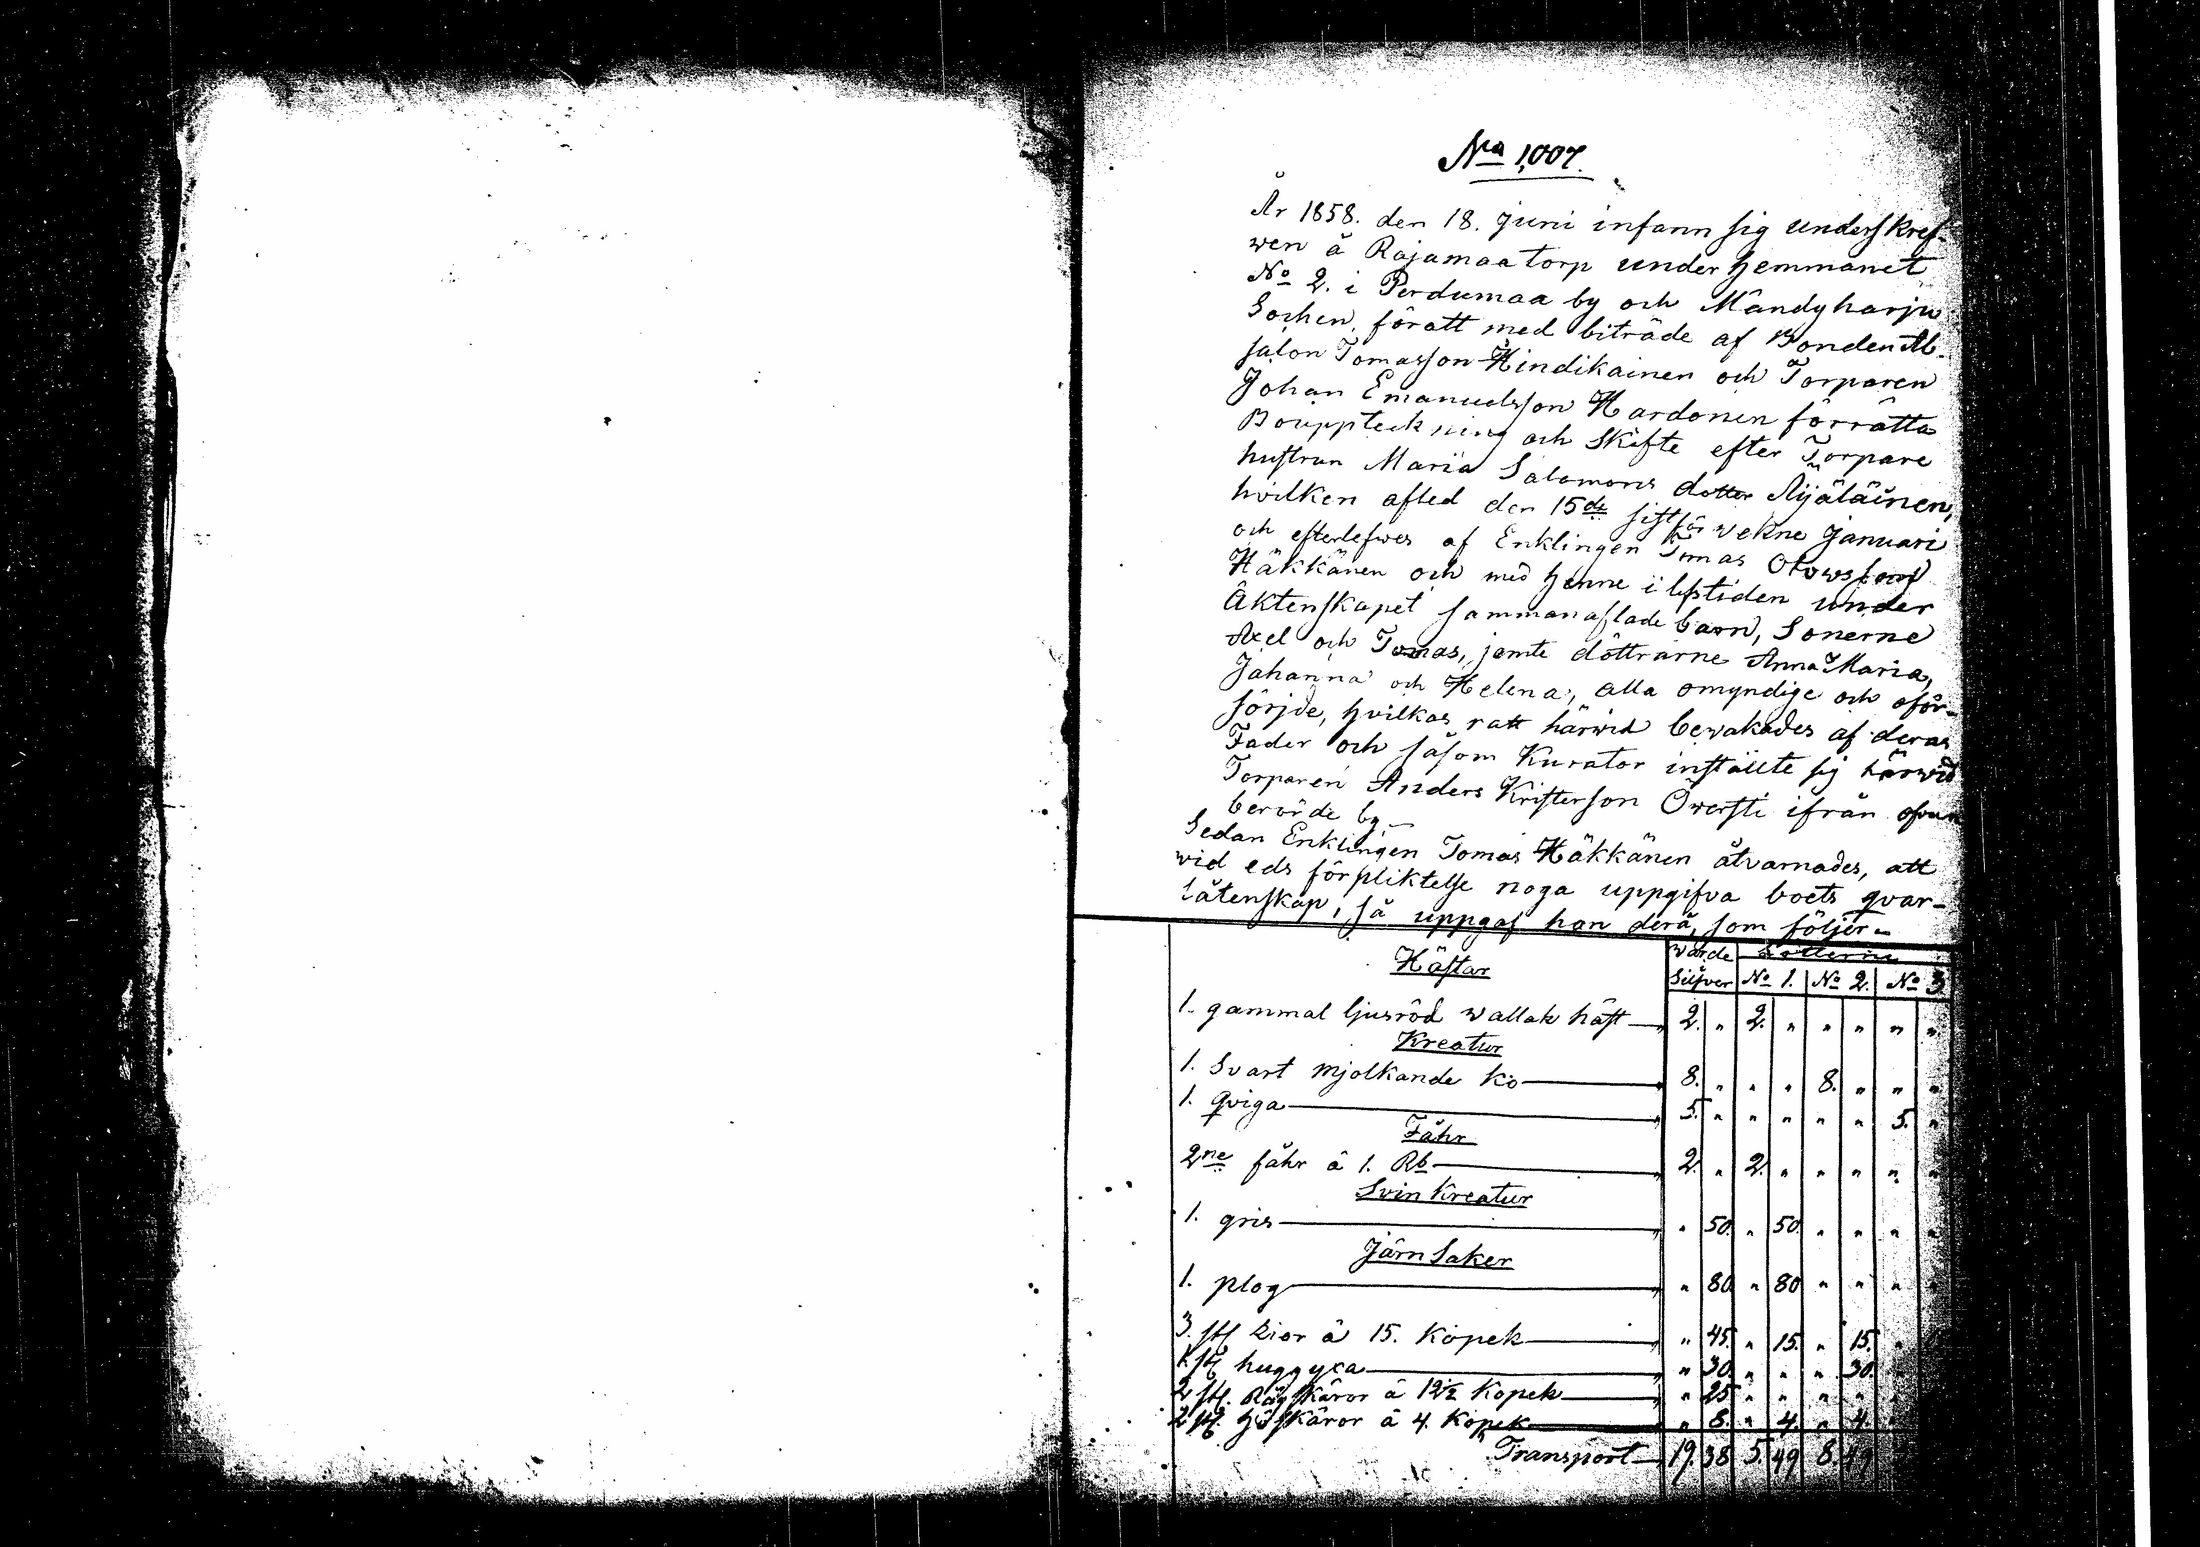 Nra 1,007.
År 1858. den 18. Juni infann sig underskref-
wen å Rajamaa torp under Hemmanet
No 2. i Perdumaa by och Mändyharju
Sochen, föratt med biträde af Bonden Ab-
salon Tomasson Hindikainen och Torparen
Johan Emanuelsson Hardonen förrätta
Bouppteckning och Skifte efter Torpare
hustrun Maria Salomons dotter Äijäläinen,
hvilken afled den 15de sistförvekne Januari
och efterlefwes af Enklingen Tomas
Häkkänen och med henne i lifstiden under
Äktenskapet sammanaflade barn, Sönerne
Axel och Tomas, jemte döttrarne Anna Maria,
Johanna och Helena, alla omyndige och oför-
sörjde, hvilkas rätt härwid bewakades af deras
Fader och såsom Kurator instälte sig härwid
Torparen Anders Kristerson Öwersti ifrån ofvan
berörde by.—
Sedan Enklingen Tomas Häkkänen åtvarnades, att
wid eds förpliktelse noga uppgifva boets qvar-
låtenskap, så uppgaf han derå, som följer.
Wärde Lotterne
Hästar Silfver No 1. No 2. No 3.
1. gammal ljusröd wallak häst — 2. " 2. " " " " "
Kreatur
1. Svart mjolkande ko — 8. " " " 8. " " "
1. qviga — 5. " " " " " 5. "
Fåhr
2ne fåhr å 1. Rb — 2. " 2. " " " " "
Svin Kreatur
1. gris — " 50. " 50. " " " "
Järn Saker
1. plog — " 80. " 80 " " " "
3. st. Lior å 15. Kopek — " 45. " 15. " 15. "
1. st. huggyxa — " 30. " " " 30.
2 st. Råg skäror å 12½ Kopek — " 25 " " " "
2 st. Höskäror å 4. Kopek — " 8. " 4. " 4.
Transport — 19. 38 5. 49 8. 49